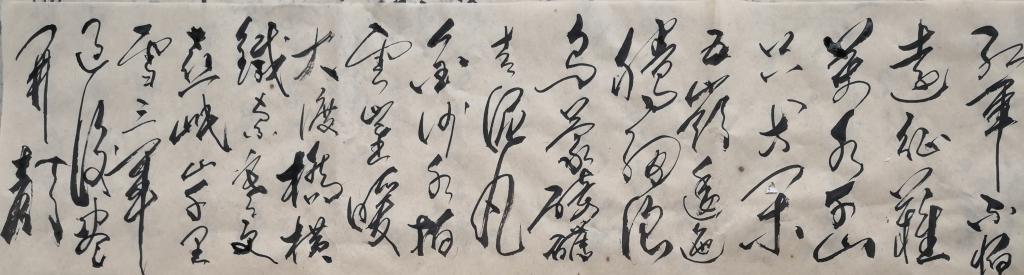 紅軍不怕
遠征難
萬水千山
只等閑
五嶺逶迤
騰細浪
烏蒙磅礴
走泥丸
金沙水拍
雲崖暖
大渡橋橫
鐵索寒更
喜岷山千里
雪三軍
過後盡
開顏